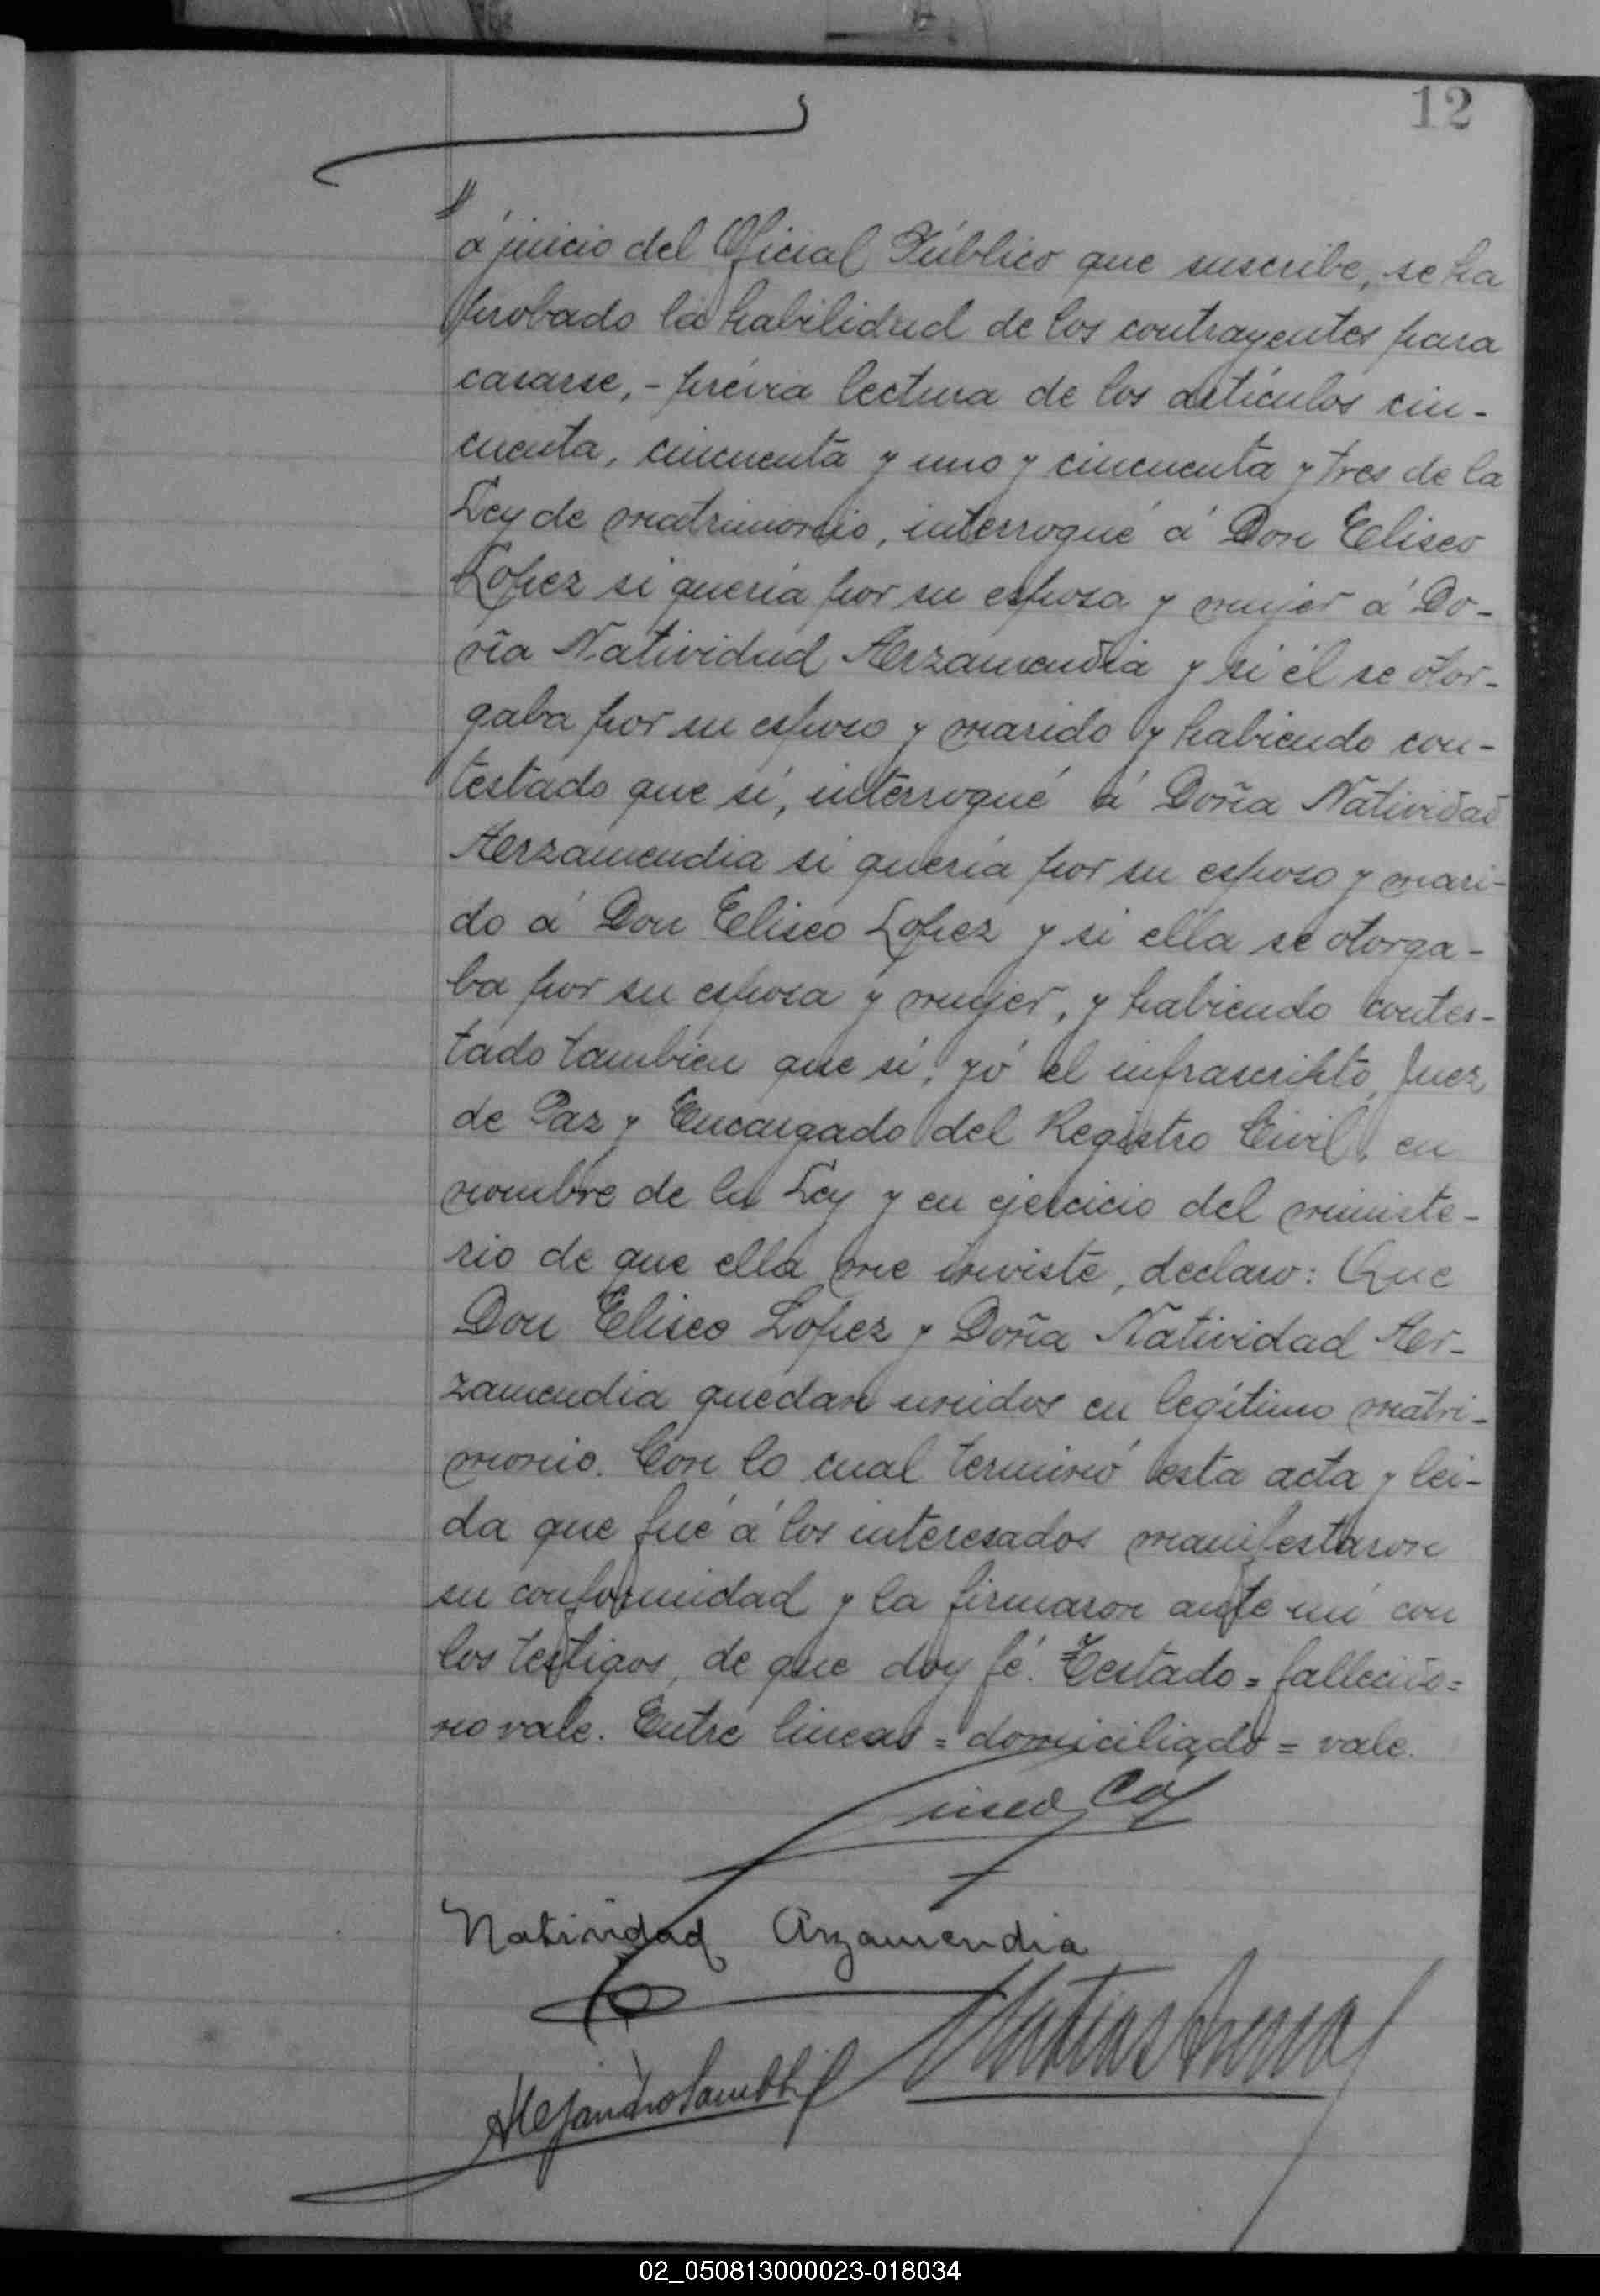 12
á juicio del Oficial Público que suscribe, se ha
probado la habilidad de los contrayentes para
casarse, - prévia lectura de los artículos cin-
cuenta, cincuenta y uno y cincuenta y tres de la
Ley de matrimonio, interrogué á Don Eliseo
Lopez si quería por su esposa y mujer á Do-
ña Natividad Aerzamendia y si él se otor-
gaba por su esposo y marido y habiendo con-
testado que sí, interrogué á Doña Natividad
Aerzamendia si quería por su esposo y mari-
do á Don Eliseo Lopez y si ella se otorga-
ba por su esposa y mujer, y habiendo contes-
tado tambien que sí, yó el infrascripto, Juez
de Paz y Encargado del Registro Civil, en
nombre de la Ley y en ejercicio del ministe-
rio de que ella me inviste, declaro: Que
Don Eliseo Lopez y Doña Natividad Aer-
zamendia quedan unidos en legítimo matri-
monio. Con lo cual terminó esta acta y lei-
da que fué á los interesados manifestaron
su conformidad y la firmaron ante mí con
los testigos, de que doy fé. Testado = falleció =
no vale. Entre lineas = domiciliado = vale.
Natividad Arzamendia
Matias
Alejandro
02_050813000023-018034